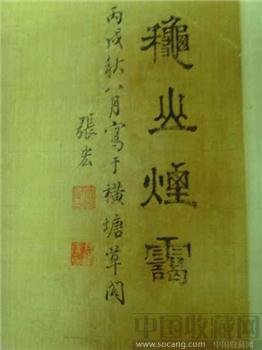 穐山煙靄
丙戌秋八月寫于橫塘草閣
張宏
中国收藏网
http://www.socang.com/中国收藏网